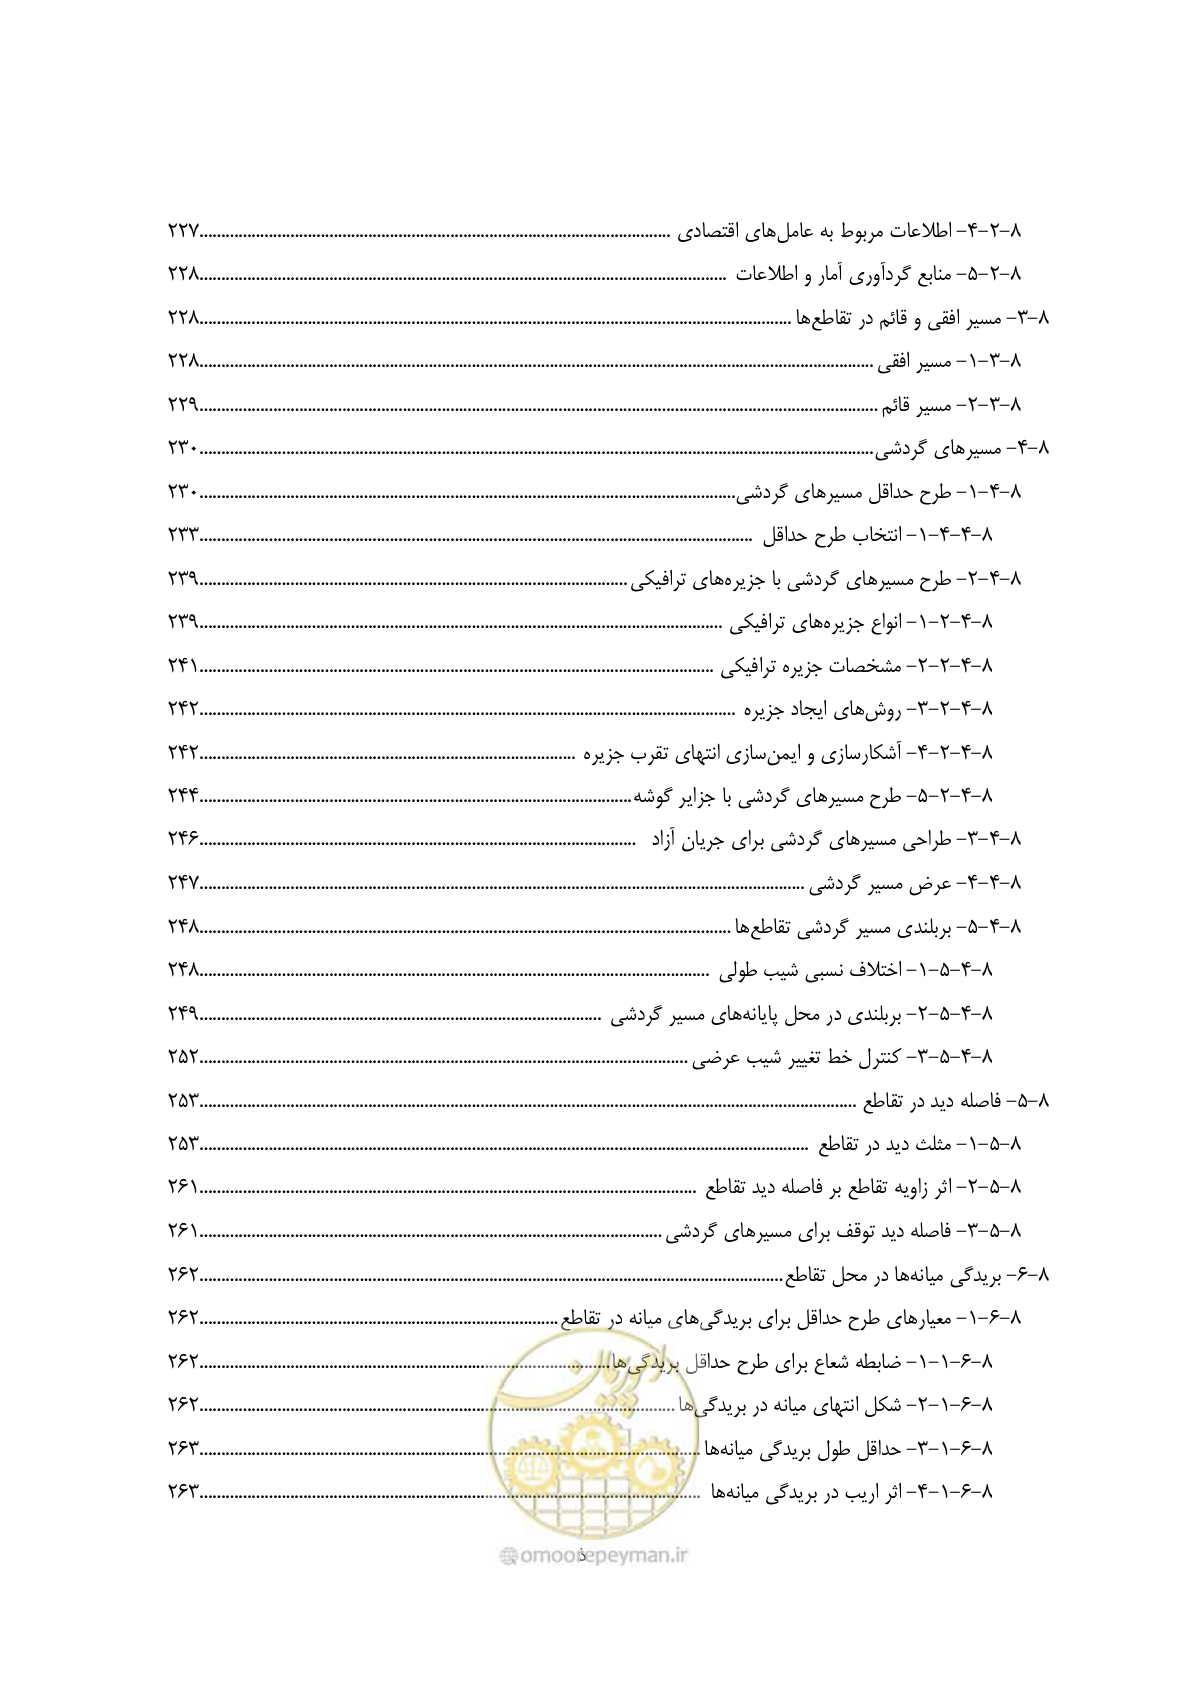 ۸-۲-۴- اطلاعات مربوط به عامل‌های اقتصادی ........ ۲۲۷
۸-۲-۵- منابع گردآوری آمار و اطلاعات ........ ۲۲۸
۸-۳- مسیر افقی و قائم در تقاطع‌ها ........ ۲۲۸
۸-۳-۱- مسیر افقی ........ ۲۲۸
۸-۳-۲- مسیر قائم ........ ۲۲۹
۸-۴- مسیرهای گردشی ........ ۲۳۰
۸-۴-۱- طرح حداقل مسیرهای گردشی ........ ۲۳۰
۸-۴-۴-۱- انتخاب طرح حداقل ........ ۲۳۳
۸-۴-۲- طرح مسیرهای گردشی با جزیره‌های ترافیکی ........ ۲۳۹
۸-۴-۲-۱- انواع جزیره‌های ترافیکی ........ ۲۳۹
۸-۴-۲-۲- مشخصات جزیره ترافیکی ........ ۲۴۱
۸-۴-۲-۳- روش‌های ایجاد جزیره ........ ۲۴۲
۸-۴-۲-۴- آشکارسازی و ایمن‌سازی انتهای تقرب جزیره ........ ۲۴۲
۸-۴-۲-۵- طرح مسیرهای گردشی با جزایر گوشه ........ ۲۴۴
۸-۴-۳- طراحی مسیرهای گردشی برای جریان آزاد ........ ۲۴۶
۸-۴-۴- عرض مسیر گردشی ........ ۲۴۷
۸-۴-۵- بربلندی مسیر گردشی تقاطع‌ها ........ ۲۴۸
۸-۴-۵-۱- اختلاف نسبی شیب طولی ........ ۲۴۸
۸-۴-۵-۲- بربلندی در محل پایانه‌های مسیر گردشی ........ ۲۴۹
۸-۴-۵-۳- کنترل خط تغییر شیب عرضی ........ ۲۵۲
۸-۵- فاصله دید در تقاطع ........ ۲۵۳
۸-۵-۱- مثلث دید در تقاطع ........ ۲۵۳
۸-۵-۲- اثر زاویه تقاطع بر فاصله دید تقاطع ........ ۲۶۱
۸-۵-۳- فاصله دید توقف برای مسیرهای گردشی ........ ۲۶۱
۸-۶- بریدگی میانه‌ها در محل تقاطع ........ ۲۶۲
۸-۶-۱- معیارهای طرح حداقل برای بریدگی‌های میانه در تقاطع ........ ۲۶۲
۸-۶-۱-۱- ضابطه شعاع برای طرح حداقل بریدگی‌ها ........ ۲۶۲
۸-۶-۱-۲- شکل انتهای میانه در بریدگی‌ها ........ ۲۶۲
۸-۶-۱-۳- حداقل طول بریدگی میانه‌ها ........ ۲۶۳
۸-۶-۱-۴- اثر اریب در بریدگی میانه‌ها ........ ۲۶۳
امور پیمان
ذ
@omoorepeyman.ir